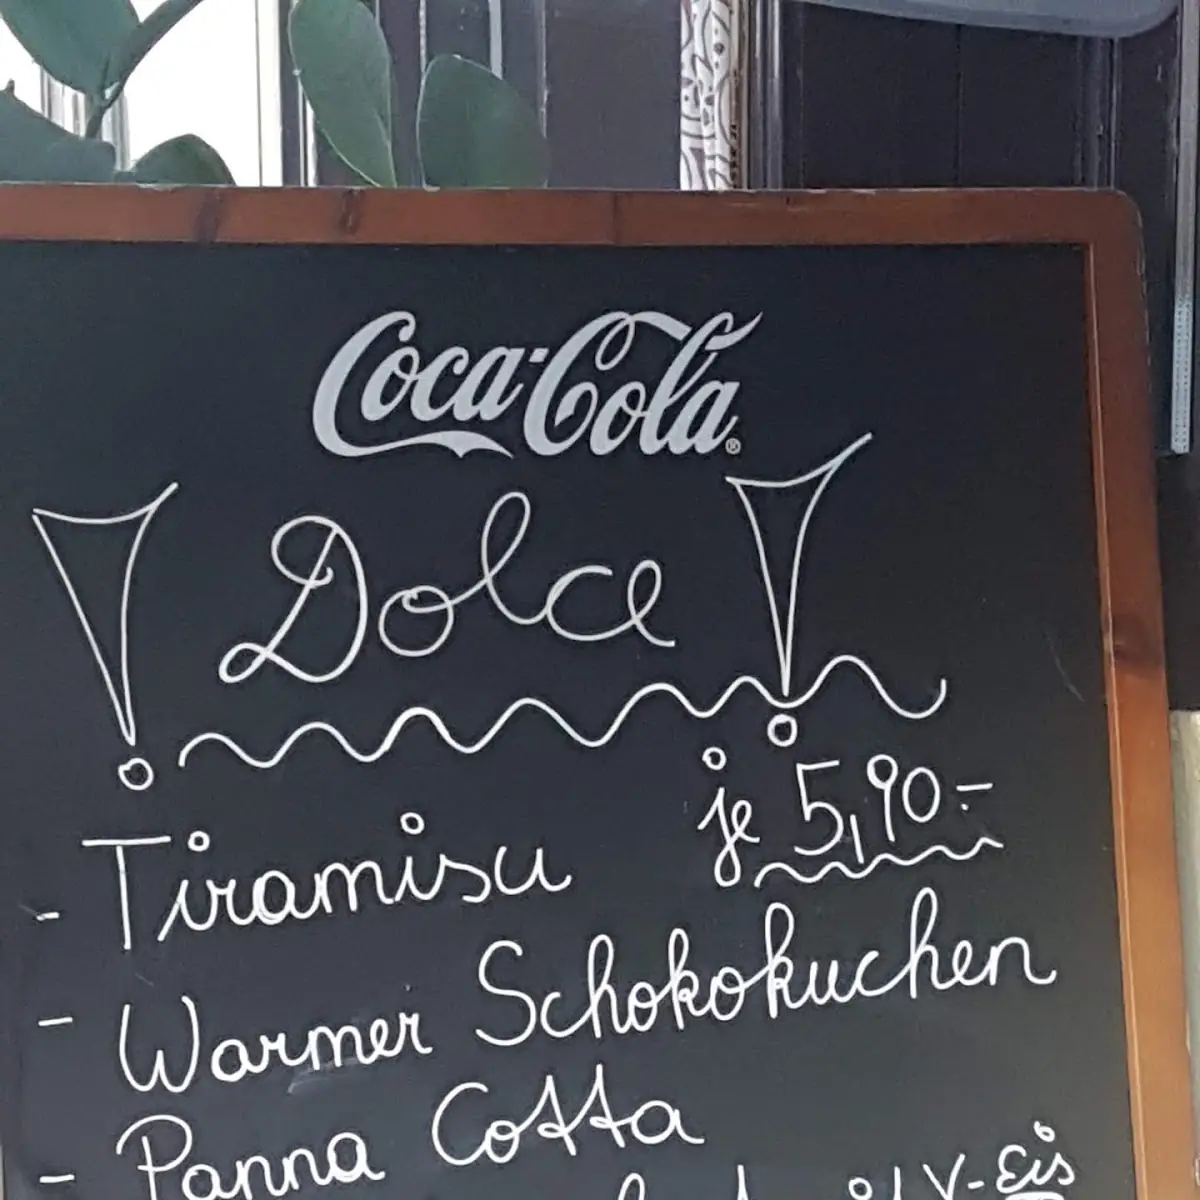 Coca-Cola®
! Dolce !
je 5,90.-
- Tiramisu
- Warmer Schokokuchen
- Panna Cotta
V-Eis